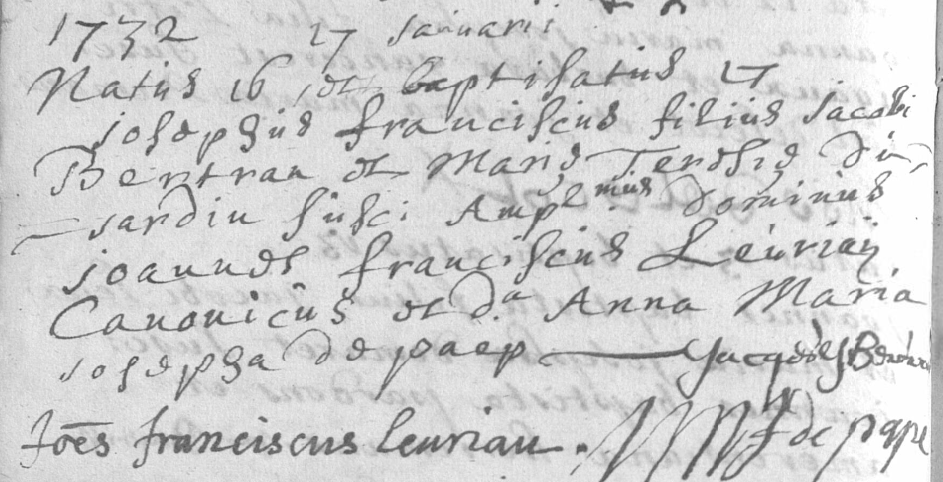 1732 17 Januarii
Natus 16 et baptisatus 17
Josephus franciscus filius Jacobi
Bertran et Mariæ Teresiæ du
Jardin susci Ampl.mus Dominus
Joannes franciscus Leurian
Canonicus et d.a Anna Maria
Josepha de paep Jacques Bertran
Joēs franciscus leurian. de pape